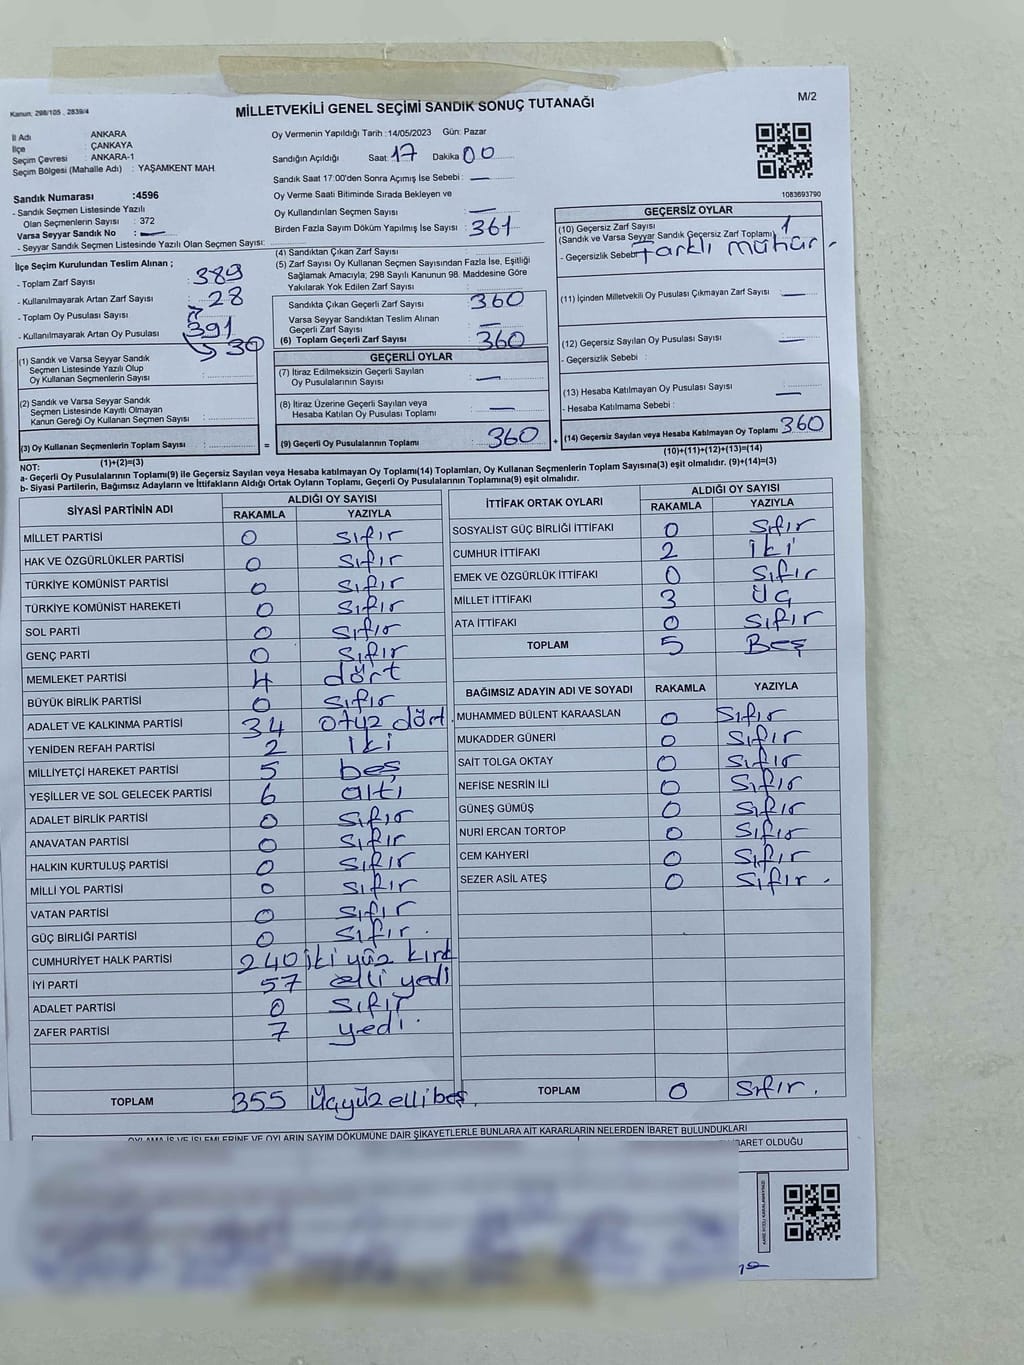 Kanun: 298/105 , 2839/4
MİLLETVEKİLİ GENEL SEÇİMİ SANDIK SONUÇ TUTANAĞI
M/2
İl Adı : ANKARA
İlçe : ÇANKAYA
Seçim Çevresi : ANKARA-1
Seçim Bölgesi (Mahalle Adı) : YAŞAMKENT MAH
Sandık Numarası :4596
- Sandık Seçmen Listesinde Yazılı
Olan Seçmenlerin Sayısı : 372
Varsa Seyyar Sandık No : —
- Seyyar Sandık Seçmen Listesinde Yazılı Olan Seçmen Sayısı:
Oy Vermenin Yapıldığı Tarih :14/05/2023 Gün: Pazar
Sandığın Açıldığı Saat: 17 Dakika 00
Sandık Saat 17:00'den Sonra Açımış İse Sebebi : —
Oy Verme Saati Bitiminde Sırada Bekleyen ve
Oy Kullandırılan Seçmen Sayısı : —
Birden Fazla Sayım Döküm Yapılmış İse Sayısı : 361
1083693790
İlçe Seçim Kurulundan Teslim Alınan ;
- Toplam Zarf Sayısı : 389
- Kullanılmayarak Artan Zarf Sayısı : 28
- Toplam Oy Pusulası Sayısı
- Kullanılmayarak Artan Oy Pusulası 391
30
(1) Sandık ve Varsa Seyyar Sandık
Seçmen Listesinde Yazılı Olup
Oy Kullanan Seçmenlerin Sayısı :
(2) Sandık ve Varsa Seyyar Sandık
Seçmen Listesinde Kayıtlı Olmayan
Kanun Gereği Oy Kullanan Seçmen Sayısı :
(3) Oy Kullanan Seçmenlerin Toplam Sayısı :
(1)+(2)=(3)
(4) Sandıktan Çıkan Zarf Sayısı :
(5) Zarf Sayısı Oy Kullanan Seçmen Sayısından Fazla İse, Eşitliği
Sağlamak Amacıyla; 298 Sayılı Kanunun 98. Maddesine Göre
Yakılarak Yok Edilen Zarf Sayısı :
Sandıkta Çıkan Geçerli Zarf Sayısı : 360
Varsa Seyyar Sandıktan Teslim Alınan
Geçerli Zarf Sayısı : —
(6) Toplam Geçerli Zarf Sayısı : 360
GEÇERLİ OYLAR
(7) İtiraz Edilmeksizin Geçerli Sayılan
Oy Pusulalarının Sayısı : —
(8) İtiraz Üzerine Geçerli Sayılan veya
Hesaba Katılan Oy Pusulası Toplamı : —
= (9) Geçerli Oy Pusulalarının Toplamı : 360
GEÇERSİZ OYLAR
(10) Geçersiz Zarf Sayısı
(Sandık ve Varsa Seyyar Sandık Geçersiz Zarf Toplamı) 1
- Geçersizlik Sebebi Farklı mühür.
(11) İçinden Milletvekili Oy Pusulası Çıkmayan Zarf Sayısı : —
(12) Geçersiz Sayılan Oy Pusulası Sayısı : —
- Geçersizlik Sebebi :
(13) Hesaba Katılmayan Oy Pusulası Sayısı :
- Hesaba Katılmama Sebebi : —
+ (14) Geçersiz Sayılan veya Hesaba Katılmayan Oy Toplamı : 360
(10)+(11)+(12)+(13)=(14)
NOT:
a- Geçerli Oy Pusulalarının Toplamı(9) ile Geçersiz Sayılan veya Hesaba katılmayan Oy Toplamı(14) Toplamları, Oy Kullanan Seçmenlerin Toplam Sayısına(3) eşit olmalıdır. (9)+(14)=(3)
b- Siyasi Partilerin, Bağımsız Adayların ve İttifakların Aldığı Ortak Oyların Toplamı, Geçerli Oy Pusulalarının Toplamına(9) eşit olmalıdır.
SİYASİ PARTİNİN ADI ALDIĞI OY SAYISI
RAKAMLA YAZIYLA
MİLLET PARTİSİ 0 Sıfır
HAK VE ÖZGÜRLÜKLER PARTİSİ 0 Sıfır
TÜRKİYE KOMÜNİST PARTİSİ 0 Sıfır
TÜRKİYE KOMÜNİST HAREKETİ 0 Sıfır
SOL PARTİ 0 Sıfır
GENÇ PARTİ 0 Sıfır
MEMLEKET PARTİSİ 4 dört
BÜYÜK BİRLİK PARTİSİ 0 Sıfır
ADALET VE KALKINMA PARTİSİ 34 otuz dört.
YENİDEN REFAH PARTİSİ 2 iki
MİLLİYETÇİ HAREKET PARTİSİ 5 beş
YEŞİLLER VE SOL GELECEK PARTİSİ 6 altı
ADALET BİRLİK PARTİSİ 0 Sıfır
ANAVATAN PARTİSİ 0 Sıfır
HALKIN KURTULUŞ PARTİSİ 0 Sıfır
MİLLİ YOL PARTİSİ 0 Sıfır
VATAN PARTİSİ 0 Sıfır
GÜÇ BİRLİĞİ PARTİSİ 0 Sıfır.
CUMHURİYET HALK PARTİSİ 240 iki yüz kırk
İYİ PARTİ 57 elli yedi
ADALET PARTİSİ 0 Sıfır
ZAFER PARTİSİ 7 yedi.
TOPLAM 355 Üçyüz elli beş.
İTTİFAK ORTAK OYLARI ALDIĞI OY SAYISI
RAKAMLA YAZIYLA
SOSYALİST GÜÇ BİRLİĞİ İTTİFAKI 0 Sıfır
CUMHUR İTTİFAKI 2 İki
EMEK VE ÖZGÜRLÜK İTTİFAKI 0 Sıfır
MİLLET İTTİFAKI 3 Üç
ATA İTTİFAKI 0 Sıfır
TOPLAM 5 Beş
BAĞIMSIZ ADAYIN ADI VE SOYADI RAKAMLA YAZIYLA
MUHAMMED BÜLENT KARAASLAN 0 Sıfır
MUKADDER GÜNERİ 0 Sıfır
SAİT TOLGA OKTAY 0 Sıfır
NEFİSE NESRİN İLİ 0 Sıfır
GÜNEŞ GÜMÜŞ 0 Sıfır
NURİ ERCAN TORTOP 0 Sıfır
CEM KAHYERİ 0 Sıfır
SEZER ASİL ATEŞ 0 Sıfır.
TOPLAM 0 Sıfır.
OYLAMA İŞ VE İŞLEMLERİNE VE OYLARIN SAYIM DÖKÜMÜNE DAİR ŞİKAYETLERLE BUNLARA AİT KARARLARIN NELERDEN İBARET BULUNDUKLARI
İBARET OLDUĞU